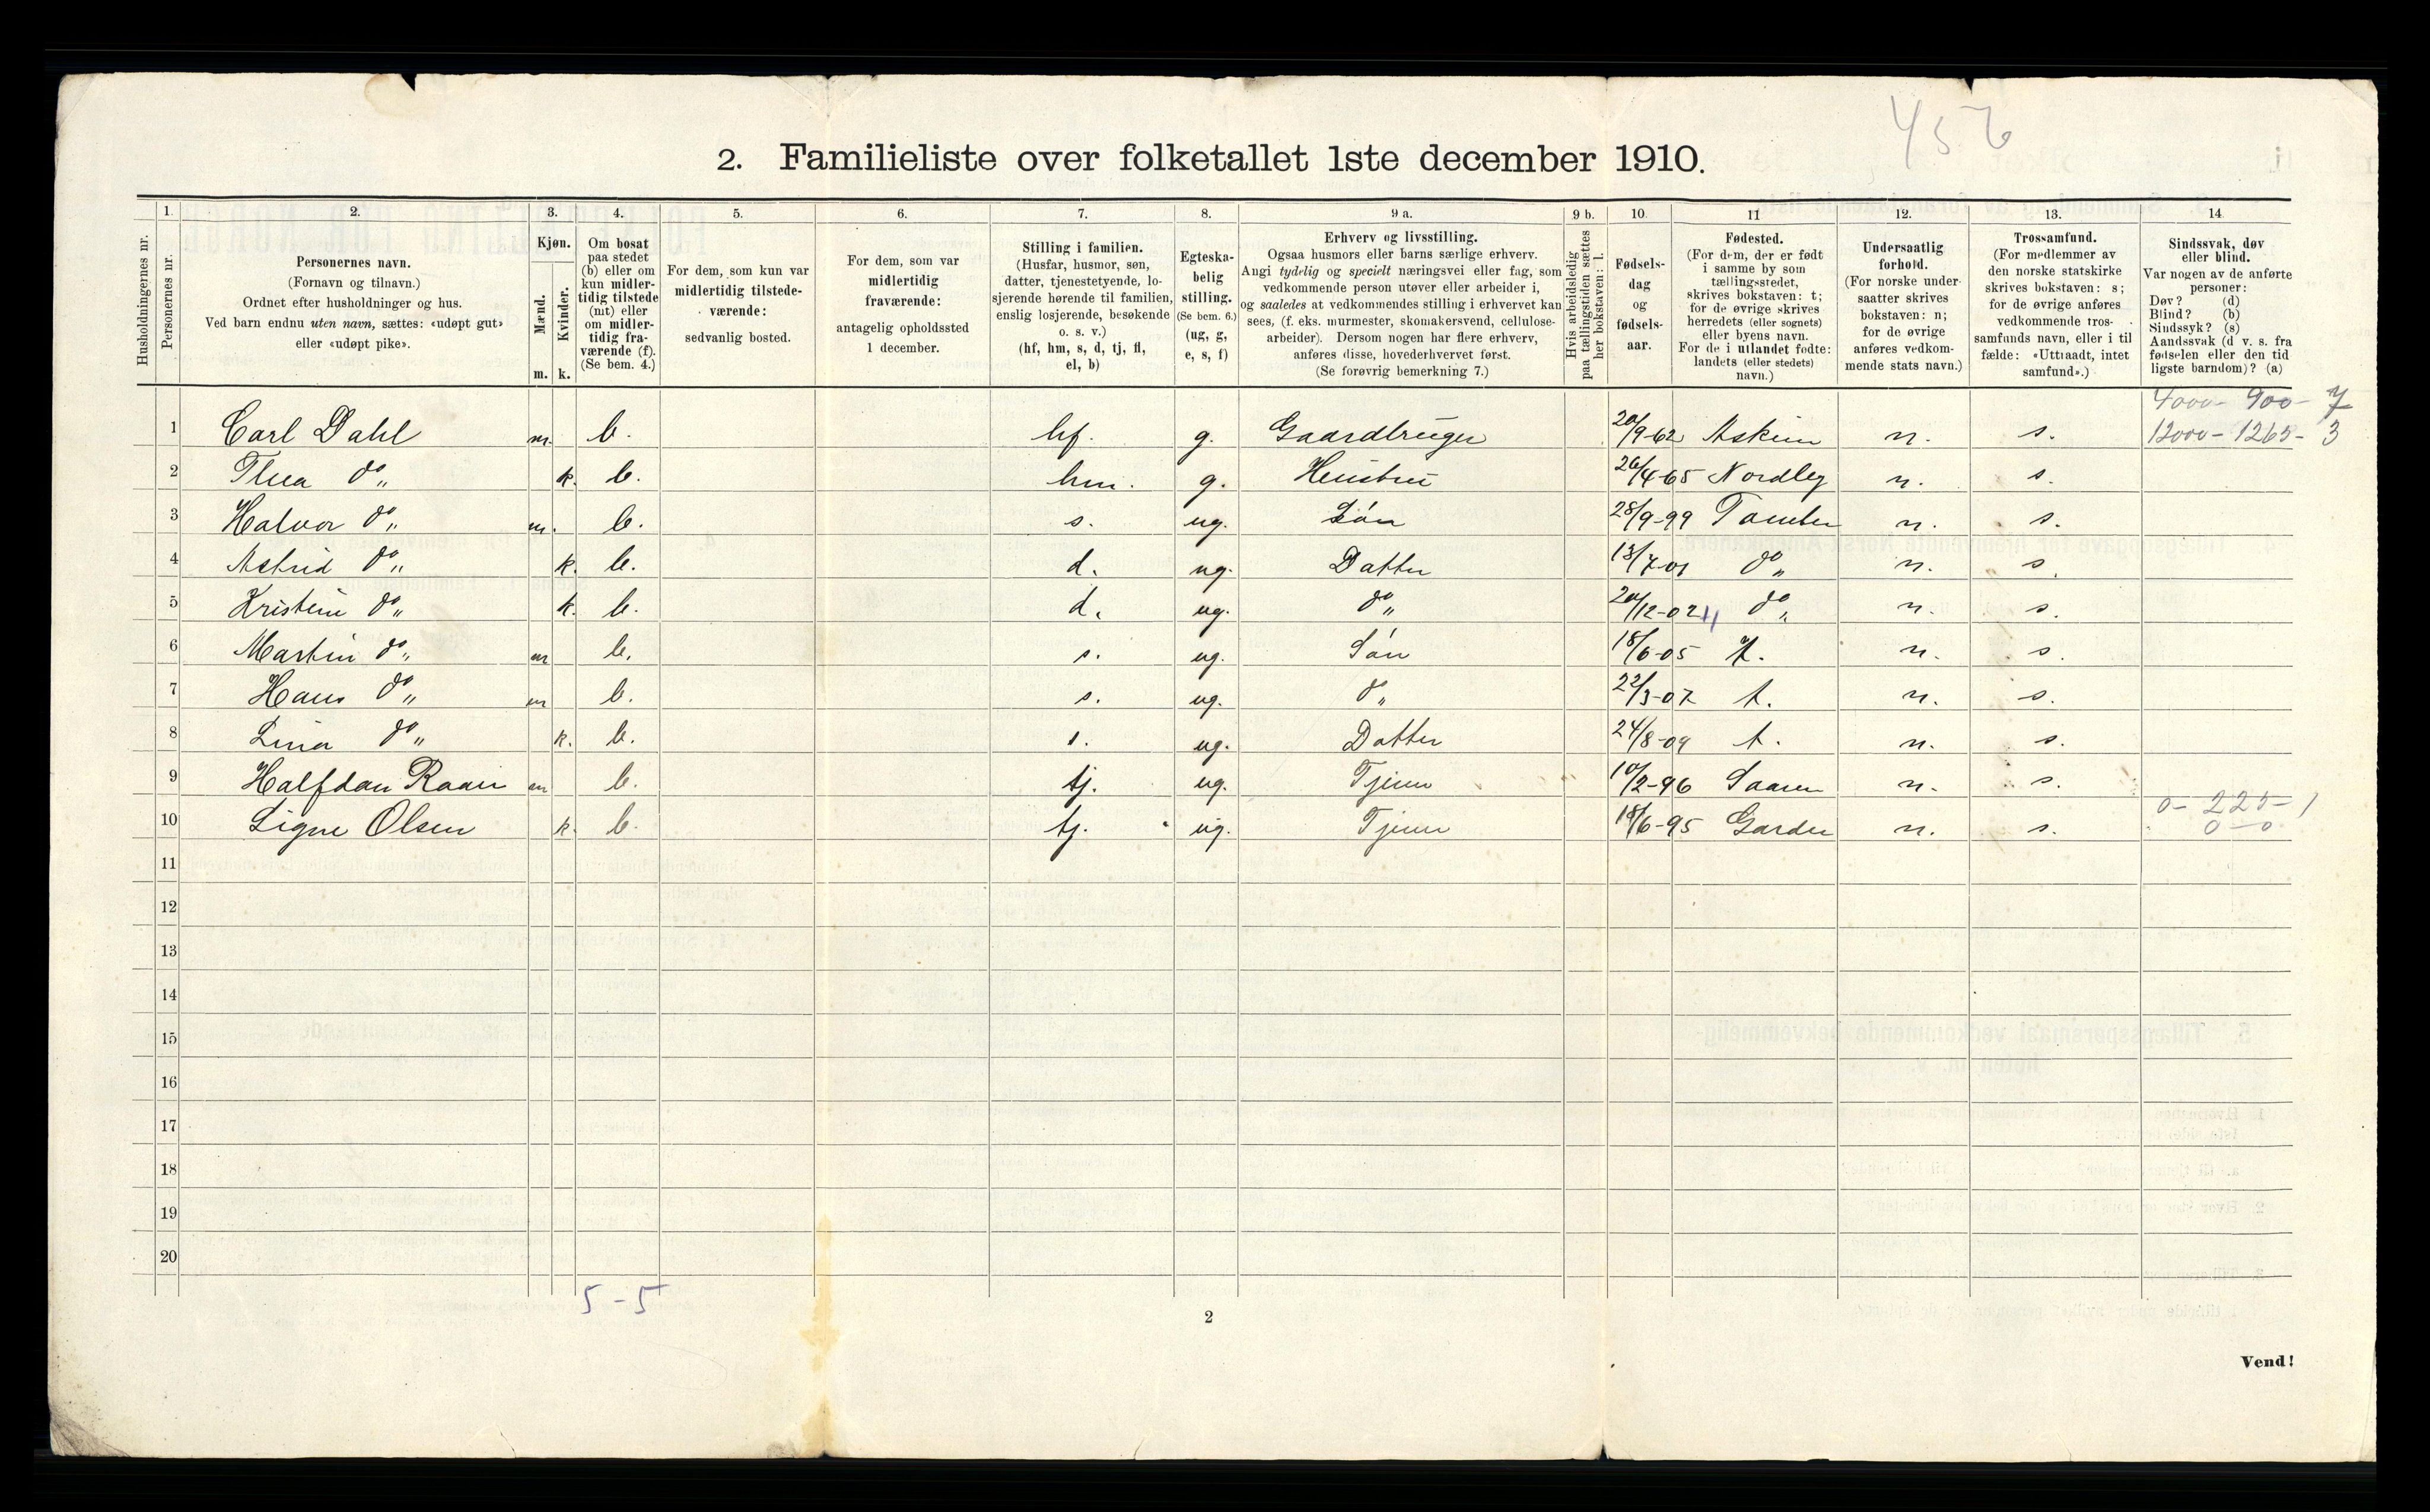 456
2. Familieliste over folketallet 1ste december 1910.
Husholdningernes nr.
1. Personernes nr.
2. Personernes navn.
(Fornavn og tilnavn.)
Ordnet efter husholdninger og hus.
Ved barn endnu uten navn, sættes: «udøpt gut»
eller «udøpt pike».
3. Kjøn.
Mænd. m.
Kvinder. k.
4. Om bosat
paa stedet
(b) eller om
kun midler-
tidig tilstede
(mt) eller
om midler-
tidig fra-
værende (f).
(Se bem. 4.)
5. For dem, som kun var
midlertidig tilstede-
værende:
sedvanlig bosted.
6. For dem, som var
midlertidig
fraværende:
antagelig opholdssted
1 december.
7. Stilling i familien.
(Husfar, husmor, søn,
datter, tjenestetyende, lo-
sjerende hørende til familien,
enslig losjerende, besøkende
o. s. v.)
(hf, hm, s, d, tj, fl,
el, b)
8. Egteska-
belig
stilling.
(Se bem. 6.)
(ug, g,
e, s, f)
9 a. Erhverv og livsstilling.
Ogsaa husmors eller barns særlige erhverv.
Angi tydelig og specielt næringsvei eller fag, som
vedkommende person utøver eller arbeider i,
og saaledes at vedkommendes stilling i erhvervet kan
sees, (f. eks. murmester, skomakersvend, cellulose-
arbeider). Dersom nogen har flere erhverv,
anføres disse, hovederhvervet først.
(Se forøvrig bemerkning 7.)
9 b. Hvis arbeidsledig
paa tællingstiden sættes
her bokstaven: l.
10. Fødsels-
dag
og
fødsels-
aar.
11 Fødested.
(For dem, der er født
i samme by som
tællingsstedet,
skrives bokstaven: t;
for de øvrige skrives
herredets (eller sognets)
eller byens navn.
For de i utlandet fødte:
landets (eller stedets)
navn.)
12. Undersaatlig
forhold.
(For norske under-
saatter skrives
bokstaven: n;
for de øvrige
anføres vedkom-
mende stats navn.)
13. Trossamfund.
(For medlemmer av
den norske statskirke
skrives bokstaven: s;
for de øvrige anføres
vedkommende tros-
samfunds navn, eller i til
fælde: «Uttraadt, intet
samfund».)
14. Sindssvak, døv
eller blind.
Var nogen av de anførte
personer:
Døv? (d)
Blind? (b)
Sindssyk? (s)
Aandssvak (d. v. s. fra
fødselen eller den tid
ligste barndom)? (a)
4000 - 900 - 7
1 Carl Dahl m. b. hf. g. Gaardbruger 20/9-62 Askim n. s. 12000 - 1265 - 3
2 Thea do„ k. b. hm. g. Hustru 26/4-65 Nordby n. s.
3 Halvor do„ m. b. s. ug. Søn 28/9-99 n. s.
4 Astrid do„ k. b. d. ug. Datter 13/7-01 do„ n. s.
5 Kristin do„ k. b. d. ug. do„ 20/12-02 do„ n. s.
6 Martin do„ m b. s. ug. Søn 18/6-05 t. n. s.
7 Hans do„ m b. s. ug. do„ 22/3-07 t. n. s.
8 Lina do„ k. b. s. ug. Datter 24/8-09 t. n. s.
9 Halfdan m b. tj. ug. Tjener 10/2-96 n. s.
0 - 225 - 1
10 Signe Olsen k. b. tj. ug. Tjener 18/6-95 n. s. 0 - 0
11
12
13
14
15
16
17
18
19
20
5 - 5
2
Vend!